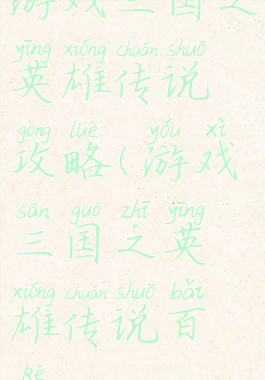 游戏三国之
yīng xióng chuán shuō
英雄传说
gōng lüè yóu xì
攻略(游戏
sān guó zhī yīng
三国之英
xióng chuán shuō bǎi
雄传说百
kē